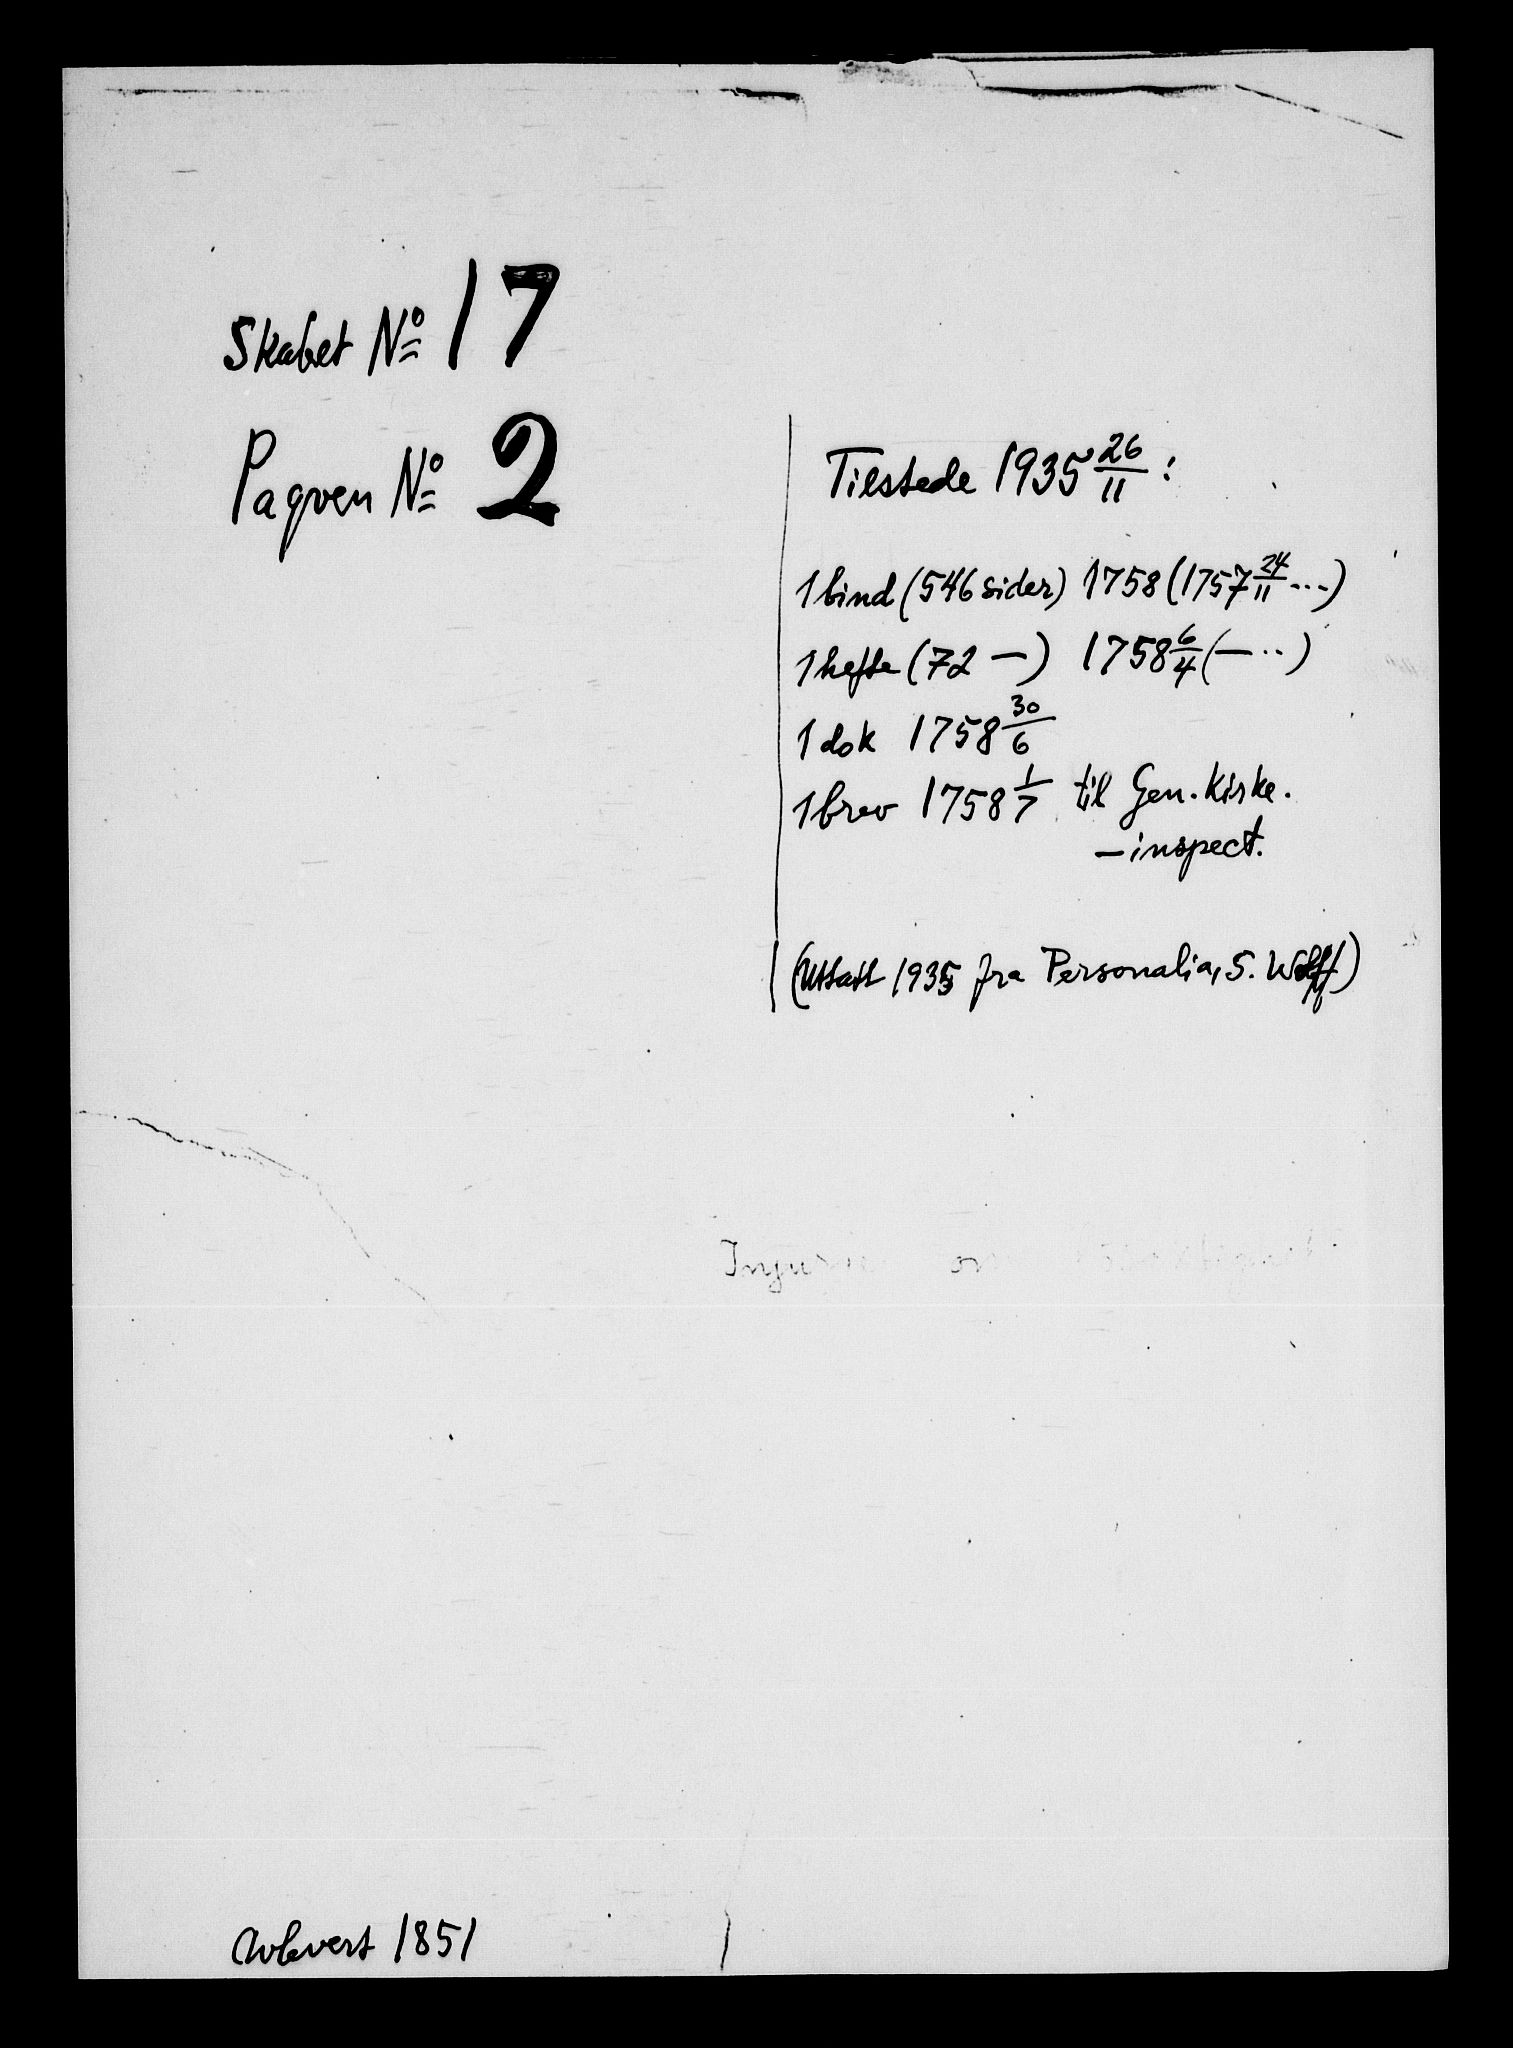 Skabet No 17
Paqven No 2
Tilstede 1935 26/11 :
1 bind (546 sider) 1758 (1757 24/11 ...)
1 hefte (72 —) 1758 6/4 (— ..)
1 dok 1758 30/6
1 brev 1758 1/7 til Gen. Kirke.
—inspect.
(Uttatt 1935 fra Personalia, S. Wolff)
Avlevert 1851